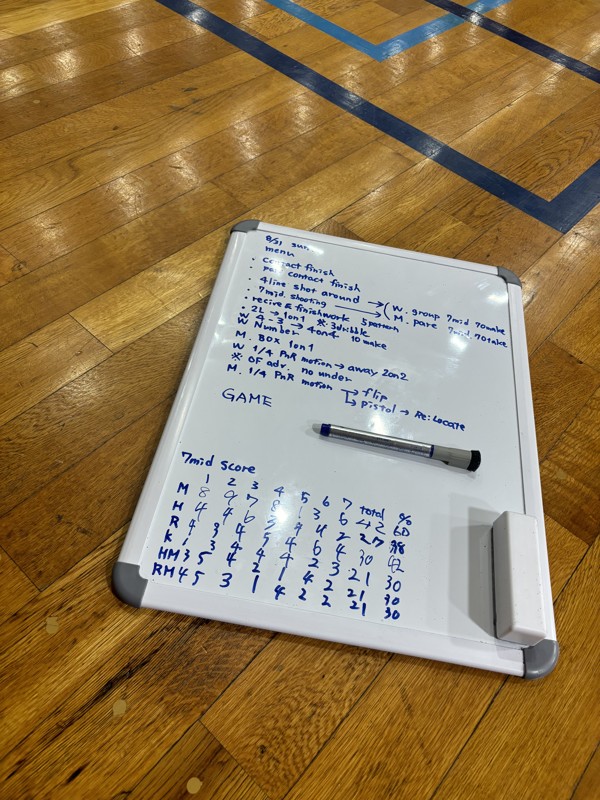 8/31 sun.
menu
・contact finish
・pair contact finish
・4line shot around
・7mid. shooting → W. group 7mid 70make
M. pare 7mid. 70take
・recive & finishwork 5pattern
・2L → 1on1 ※3dribble
W 4-3 → 4on4 10make
W Number
M. BOX 1on1
W 1/4 PnR motion → away 2on2
※ OF adv. no under
M. 1/4 PnR motion → flip
→ Pistol → Re:Locate
GAME
7mid score
1 2 3 4 5 6 7 total %
M 8 9 7 8 1 3 6 42 60
H 4 4 6 4 2 27 38
R 4 3 4 5 4 6 4 30 42
K 1 3 4 4 4 2 3 21 30
HM 3 5 4 2 1 4 2 21 30
RM 4 5 3 1 4 2 2 21 30